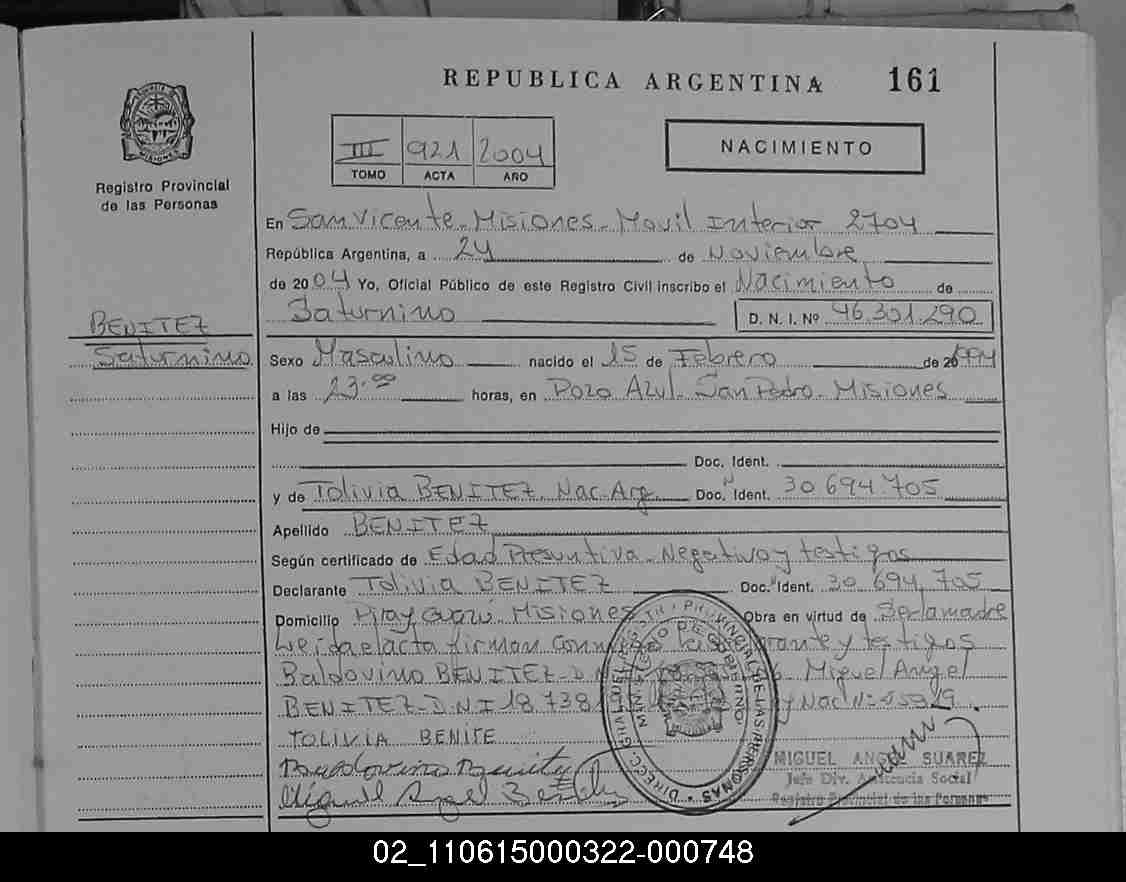 REPUBLICA ARGENTINA 161
III 921 2004
TOMO ACTA AÑO
NACIMIENTO
MISIONES
Registro Provincial
de las Personas
En San Vicente - Misiones - Movil Interior 2704
República Argentina, a 24 de Noviembre
de 2004 Yo, Oficial Público de este Registro Civil inscribo el Nacimiento de
Saturnino D. N. I. Nº 46.301.290
BENITEZ
Saturnino
Sexo Masculino nacido el 15 de Febrero de 20 1994
a las 23.00 horas, en Pozo Azul - San Pedro - Misiones
Hijo de
Doc. Ident.
y de Tolivia BENITEZ Nac. Arg. Doc. Ident. 30 694.705
Apellido BENITEZ
Según certificado de Edad Presuntiva - Negativo y testigos
Declarante Tolivia BENITEZ Doc. Ident. 30 694.705
Domicilio Piray Guazú Misiones Obra en virtud de Ser la madre
Leida el acta firman conmigo y testigos
Baldovino BENITEZ - Miguel Angel
BENITEZ - D.N.I 18 738 Nac Nº
TOLIVIA BENITE
Baldovino Benitez
Miguel Angel Benitez
DIRECC. GRAL. REGISTRO PROVINCIAL DE LAS PERSONAS
MINISTERIO DE GOBIERNO
MIGUEL ANGEL SUAREZ
Jefe Div. Asistencia Social
Registro Provincial de las Personas
02_110615000322-000748